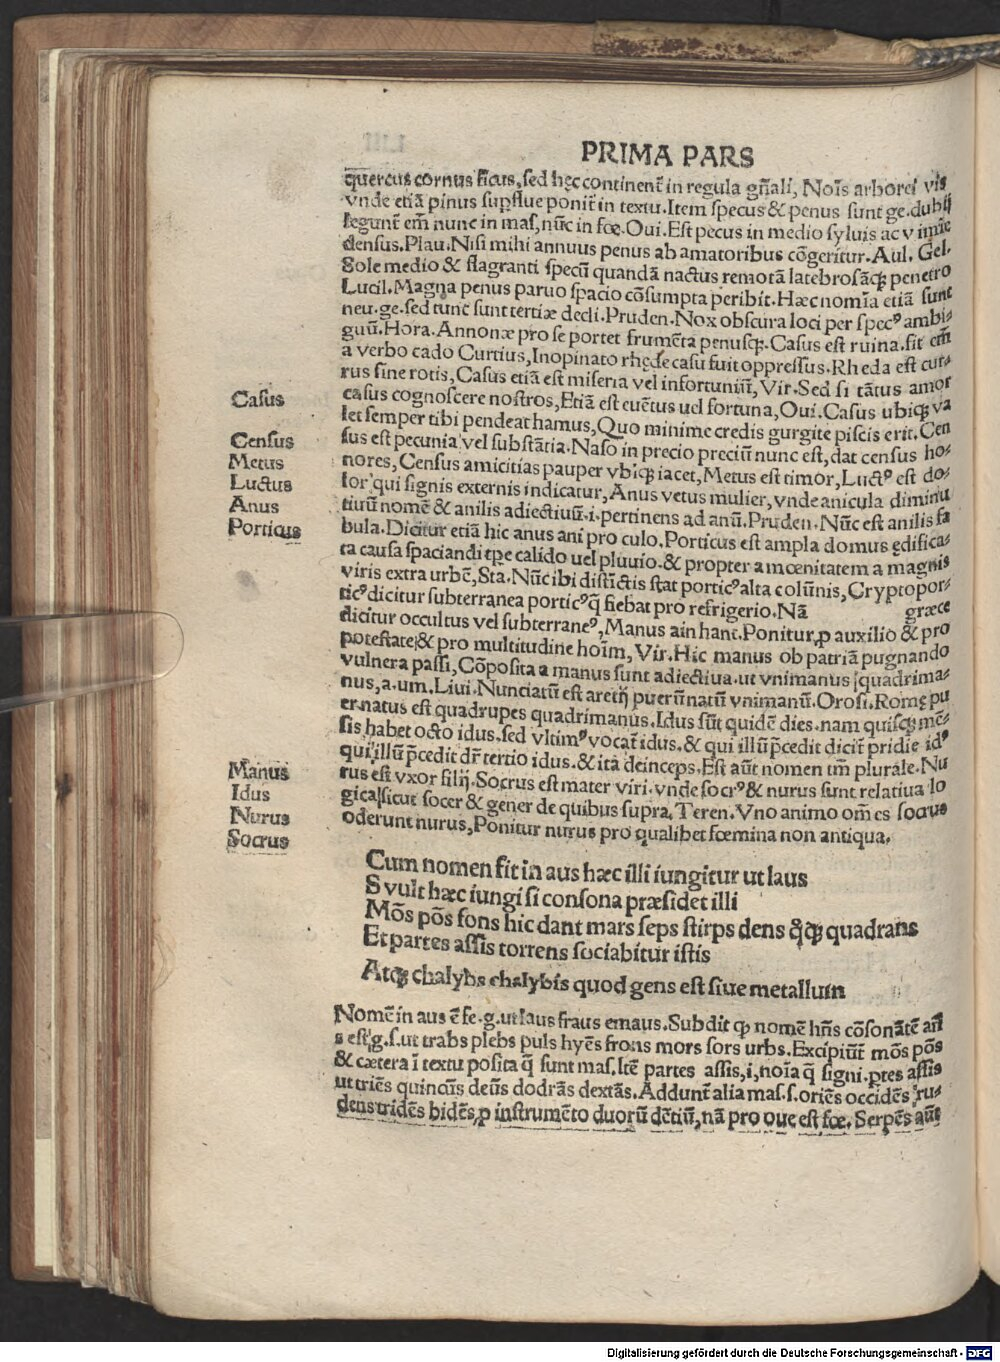 PRIMA PARS
quercus cornus ficus, sed hęc continent̄ in regula gn̄ali, Noīs arborei vis
vnde etiā pinus supflue ponit̄ in textu. Item specus & penus sunt ge. dubij
legunt̄ em̄ nunc in mas, nūc in fœ. Oui. Est pecus in medio syluis ac v imīe
densus. Plau. Nisi mihi annuus penus ab amatoribus cōgeritur. Aul. Gel.
Sole medio & flagranti specū quandā nactus remotā latebrosāqꝫ penetro
Lucil. Magna penus paruo spacio cōsumpta peribit. Hæc nomīa etiā sunt
neu. ge. sed tunc sunt tertiæ decli. Pruden. Nox obscura loci per specꝰ ambi-
guū. Hora. Annonæ pro se portet frumēta penusqꝫ. Casus est ruina. fit em̄
a verbo cado Curtius, Inopinato rhędę casu fuit oppressus. Rheda est cur-
rus sine rotis, Casus etiā est miseria vel infortuniū, Vir. Sed si tātus amor
Casus
casus cognoscere nostros, Etiā est euētus uel fortuna, Oui. Casus ubiqꝫ va
let semper tibi pendeat hamus, Quo minime credis gurgite piscis erit. Cen
Census
sus est pecunia vel substātia. Naso in precio preciū nunc est, dat census ho-
Metus
nores, Census amicitias pauper vbiqꝫ iacet, Metus est timor, Luctꝰ est do-
Luctus
lor qui signis externis indicatur, Anus vetus mulier, vnde anicula diminu
Anus
tiuū nomē & anilis adiectiuū. i. pertinens ad anū. Pruden. Nūc est anilis fa
Porticus
bula. Dicitur etiā hic anus ani pro culo. Porticus est ampla domus ędifica-
ta causa spaciandi tꝑe calido uel pluuio. & propter amœnitatem a magnis
viris extra urbē, Sta. Nūc ibi distīctis stat porticꝰ alta colūnis, Cryptopor-
ticꝰ dicitur subterranea porticꝰ q̄ fiebat pro refrigerio. Nā græce
dicitur occultus vel subterraneꝰ, Manus ain hant. Ponitur ꝓ auxilio & pro
potestate & pro multitudine hoīm, Vir. Hic manus ob patriā pugnando
vulnera passi, Cōposita a manus sunt adiectiua. ut vnimanus quadrima-
nus, a. um. Liui. Nunciatū est aretij puerū natū vnimanū. Orosi. Romę pu
er natus est quadrupes quadrimanus. Idus sūt quidē dies. nam quisqꝫ mē-
sis habet octo idus. sed vltimꝰ vocat̄ idus. & qui illū p̄cedit dicit̄ pridie idꝰ
Manus
qui illū p̄cedit dr̄ tertio idus. & ita deinceps. Est aūt nomen tm̄ plurale. Nu
Idus
rus est vxor filij. Socrus est mater viri. vnde socrꝰ & nurus sunt relatiua lo
Nurus
gica sicut socer & gener de quibus supra, Teren. Vno animo om̄es socrus
Socrus
oderunt nurus, Ponitur nurus pro qualibet fœmina non antiqua.
Cum nomen fit in aus hæc illi iungitur ut laus
S vult hæc iungi si consona præsidet illi
Mōs pōs fons hic dant mars seps stirps dens qꝫ quadrans
Et partes assis torrens sociabitur istis
Atqꝫ chalybs chalybis quod gens est siue metallum
Nomē in aus ē fe. g. ut laus fraus emaus. Subdit ꝙ nomē hn̄s cōsonātē an̄
s est g. f. ut trabs plebs puls hyēs frons mors sors urbs. Excipiūt̄ mōs pōs
& cætera ī textu posita q̄ sunt mas. Itē partes assis, i, noīa q̄ signi. ꝑtes assis
ut triēs quincūs deūs dodrās dextās. Addunt̄ alia mas. s. oriēs occidēs ru-
dens tridēs bidēs, ꝓ instrumēto duorū dētiū, nā pro oue est fœ. Serpēs aūt
Digitalisierung gefördert durch die Deutsche Forschungsgemeinschaft - DFG